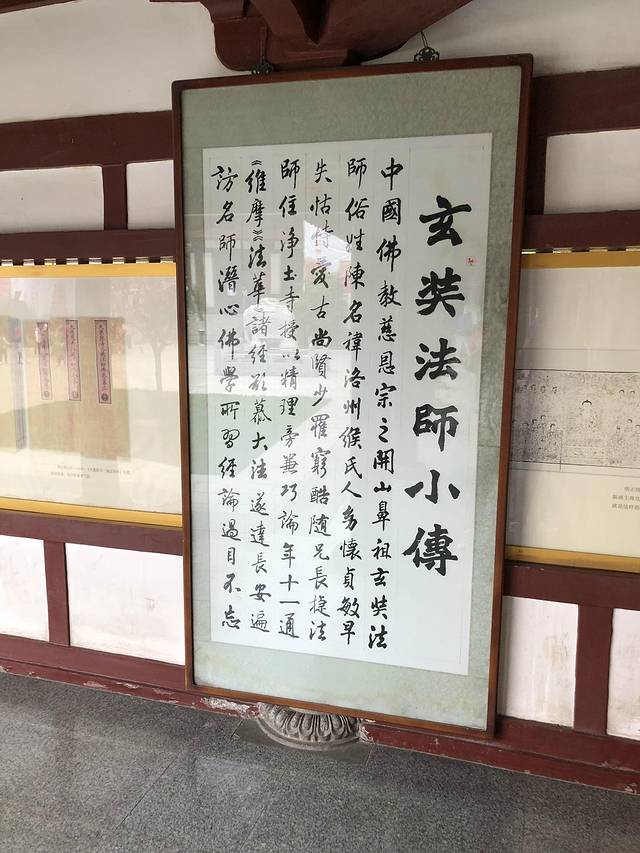 玄奘法師小傳
中國佛教慈恩宗之開山鼻祖玄奘法
師俗姓陳名褘洛州緱氏人多懷貞敏早
失怙恃愛古尚賢少罹窮酷随兄長捷法
師住淨土寺授以精理旁兼巧論年十一通
《維摩》《法華》諸經欣慕大法遂達長安遍
訪名師潛心佛學所習經論過目不忘